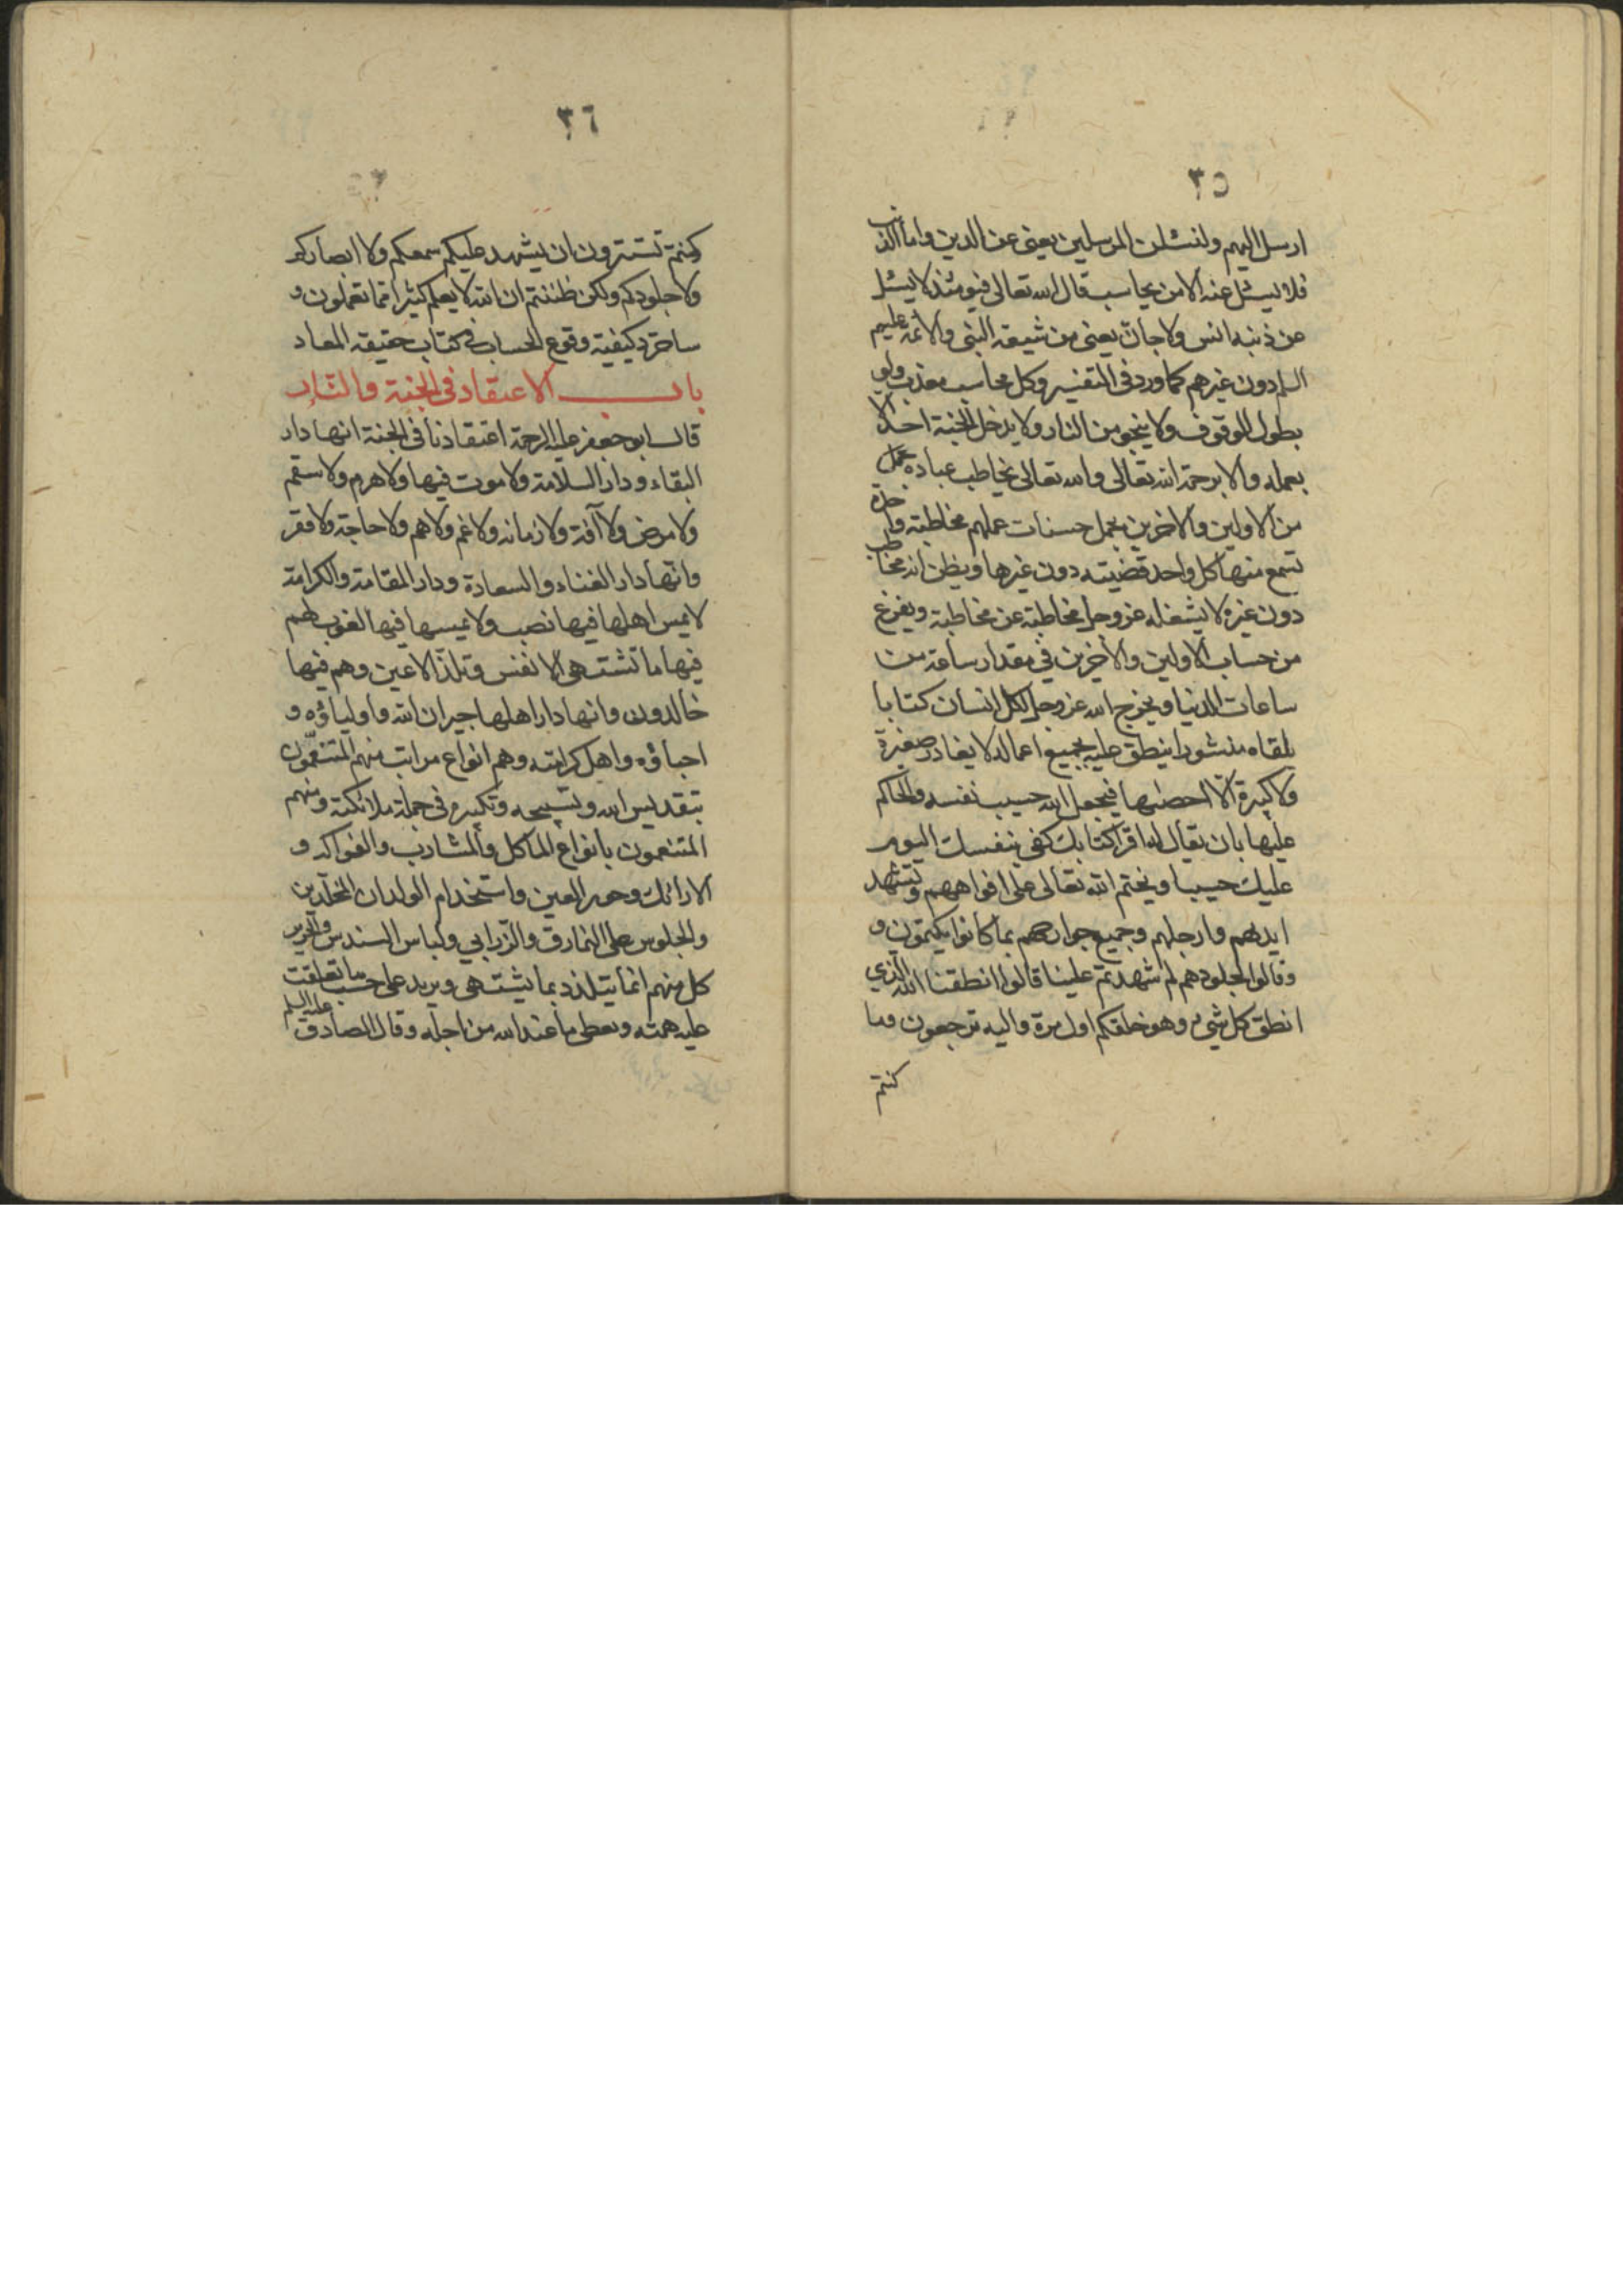 ٣٥
ارسل اليهم ولنسئلن المرسلين يعنى عن الدين واما الذنب
فلا يسئل عنه الا من يحاسب قال الله تعالى فيومئذ لا يسئل
عن ذنبه انس ولا جانّ يعنى من شيعة النبى والائمة عليهم
السلم دون غيرهم كما ورد فى التفسير وكل محاسب معذب ولو
بطول الوقوف ولا ينجو من النار ولا يدخل الجنة احد الا
بعمله والا برحمة الله تعالى والله تعالى يخاطب عباده
من الاولين والاخرين بمجمل حسنات عملهم مخاطبة واحدة
تسمع منها كل واحد قضيته دون غيرها ويظن انه مخاطب
دون غيره لا يشغله عز وجل مخاطبة عن مخاطبة ويفرغ
من حساب الاولين والاخرين فى مقدار ساعة من
ساعات الدنيا ويخرج الله عز وجل لكل انسان كتابا
يلقاه منشورا ينطق عليه بجميع اعماله لا يغادر صغيرة
ولا كبيرة الّا احصٰها فيجعل الله حسيب نفسه والحاكم
عليها بان يقال له اقرا كتابك كفى بنفسك اليوم
عليك حسيبا ويختم الله تعالى على افواههم وتشهد
ايديهم وارجلهم وجميع جوارحهم بما كانوا يكتمون و
وقالوا لجلودهم لم شهدتم علينا قالوا انطقنا الله الذي
انطق كل شيء وهو خلقكم اول مرة واليه ترجعون وما
كنتم
٣٦
كنتم تستترون ان يشهد عليكم سمعكم ولا ابصاركم
ولا جلودكم ولكن ظننتم ان الله لا يعلم كثيرا مما تعملون و
ساجرد كيفية وقوع الحساب فى كتاب حقيقة المعاد
باب الاعتقاد فى الجنة والنّار
قال ابو جعفر عليه الرحمة اعتقادنا فى الجنة انها دار
البقاء ودار السلامة ولا موت فيها ولا هرم ولا سقم
ولا مرض ولا آفة ولا زمانه ولا غم ولا هم ولا حاجة ولا فقر
وانها دار الغناء والسعادة ودار المقامة والكرامة
لا يمس اهلها فيها نصب ولا يمسها فيها لغوب لهم
فيها ما تشتهى الانفس وتلذ الاعين وهم فيها
خالدون وانها دار اهلها جيران الله واولياؤه و
احباؤه واهل كرامته وهم انواع مراتب منهم المتنعمون
بتقديس الله وتسبيحه وتكبيره فى جملة ملائكته ومنهم
المتنعمون بانواع المأكل والمشارب والفواكه و
الارائك وحور العين واستخدام الولدان المخلّدين
والجلوس على النمارق والزرابي ولباس السندس والحرير
كل منهم انما يتلذذ بما يشتهى ويريد على حسب ما تعلقت
عليه همته ويعطى ما عند الله من اجله وقال الصادق عليه السلم